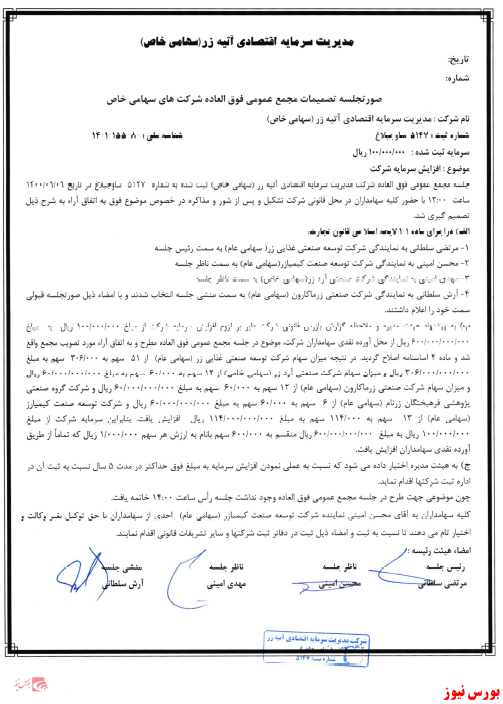 مدیریت سرمایه اقتصادی آتیه زر(سهامی خاص)
تاریخ:
شماره:
صورتجلسه تصمیمات مجمع عمومی فوق العاده شرکت های سهامی خاص
نام شرکت : مدیریت سرمایه اقتصادی آتیه زر (سهامی خاص)
شماره ثبت : ۵۱۴۷ ساوجبلاغ شناسه ملی :
سرمایه ثبت شده : ۱۰۰/۰۰۰/۰۰۰ ریال
موضوع : افزایش سرمایه شرکت
جلسه مجمع عمومی فوق العاده شرکت مدیریت سرمایه اقتصادی آتیه زر (سهامی خاص) ثبت شده به شماره ۵۱۴۷ ساوجبلاغ در تاریخ ۱۴۰۰/۰۶/۰۶
ساعت ۱۳:۰۰ با حضور کلیه سهامداران در محل قانونی شرکت تشکیل و پس از شور و مذاکره در خصوص موضوع فوق به اتفاق آراء به شرح ذیل
تصمیم گیری شد.
الف) در اجرای ماده ۱۰۱ لایحه اصلاحی قانون تجارت:
۱- مرتضی سلطانی به نمایندگی شرکت توسعه صنعتی غذایی زر( سهامی عام) به سمت رئیس جلسه
۲- محسن امینی به نمایندگی شرکت توسعه صنعت کیمیازر(سهامی عام) به سمت ناظر جلسه
۳- مهدی امینی به نمایندگی شرکت صنعتی آرد زر(سهامی خاص) به سمت ناظر جلسه
۴- آرش سلطانی به نمایندگی شرکت صنعتی زرماکارون (سهامی عام) به سمت منشی جلسه انتخاب شدند و با امضاء ذیل صورتجلسه قبولی
سمت خود را اعلام داشتند.
ب) به پیشنهاد هیئت مدیره و ملاحظه گزارش بازرس قانونی شرکت مبنی بر لزوم افزایش سرمایه شرکت از مبلغ ۱۰۰/۰۰۰/۰۰۰ ریال به مبلغ
۶۰۰/۰۰۰/۰۰۰/۰۰۰ ریال از محل آورده نقدی سهامداران شرکت، موضوع در جلسه مجمع عمومی فوق العاده مطرح و به اتفاق آراء مورد تصویب مجمع واقع
شد و ماده ۴ اساسنامه اصلاح گردید. در نتیجه میزان سهام شرکت توسعه صنعتی غذایی زر (سهامی عام) از ۵۱ سهم به ۳۰۶/۰۰۰ سهم به مبلغ
۳۰۶/۰۰۰/۰۰۰/۰۰۰ ریال و میزان سهام شرکت صنعتی آرد زر (سهامی خاص) از ۱۲ سهم به ۶۰/۰۰۰ سهم به مبلغ ۶۰/۰۰۰/۰۰۰/۰۰۰ ریال
و میزان سهام شرکت صنعتی زرماکارون (سهامی عام) از ۱۲ سهم به ۶۰/۰۰۰ سهم به مبلغ ۶۰/۰۰۰/۰۰۰/۰۰۰ ریال و شرکت گروه صنعتی
پژوهشی فرهیختگان زرنام (سهامی عام) از ۶ سهم به ۶۰/۰۰۰ سهم به مبلغ ۶۰/۰۰۰/۰۰۰/۰۰۰ ریال و شرکت توسعه صنعت کیمیازر
(سهامی عام) از ۱۳ سهم به ۱۱۴/۰۰۰ سهم به مبلغ ۱۱۴/۰۰۰/۰۰۰/۰۰۰ ریال افزایش یافت. بنابراین سرمایه شرکت از مبلغ
۱۰۰/۰۰۰/۰۰۰ ریال به مبلغ ۶۰۰/۰۰۰/۰۰۰/۰۰۰ ریال منقسم به ۶۰۰/۰۰۰ سهم بانام به ارزش هر سهم ۱/۰۰۰/۰۰۰ ریال که تماماً از طریق
آورده نقدی سهامداران افزایش یافت.
ج) به هیئت مدیره اختیار داده می شود که نسبت به عملی نمودن افزایش سرمایه به مبلغ فوق حداکثر در مدت ۵ سال نسبت به ثبت آن در
اداره ثبت شرکتها اقدام نماید.
چون موضوعی جهت طرح در جلسه مجمع عمومی فوق العاده وجود نداشت جلسه رأس ساعت ۱۴:۰۰ خاتمه یافت.
کلیه سهامداران به آقای محسن امینی نماینده شرکت توسعه صنعت کیمیازر (سهامی عام) احدی از سهامداران با حق توکیل بغیر وکالت و
اختیار تام می دهند تا نسبت به ثبت و امضاء ذیل ثبت در دفاتر ثبت شرکتها و سایر تشریفات قانونی اقدام نمایند.
امضاء هیئت رئیسه :
رئیس جلسه ناظر جلسه ناظر جلسه منشی جلسه
مرتضی سلطانی محسن امینی مهدی امینی آرش سلطانی
شرکت مدیریت سرمایه اقتصادی آتیه زر
(سهامی خاص)
شماره ثبت: ۵۱۴۷
بورس نیوز